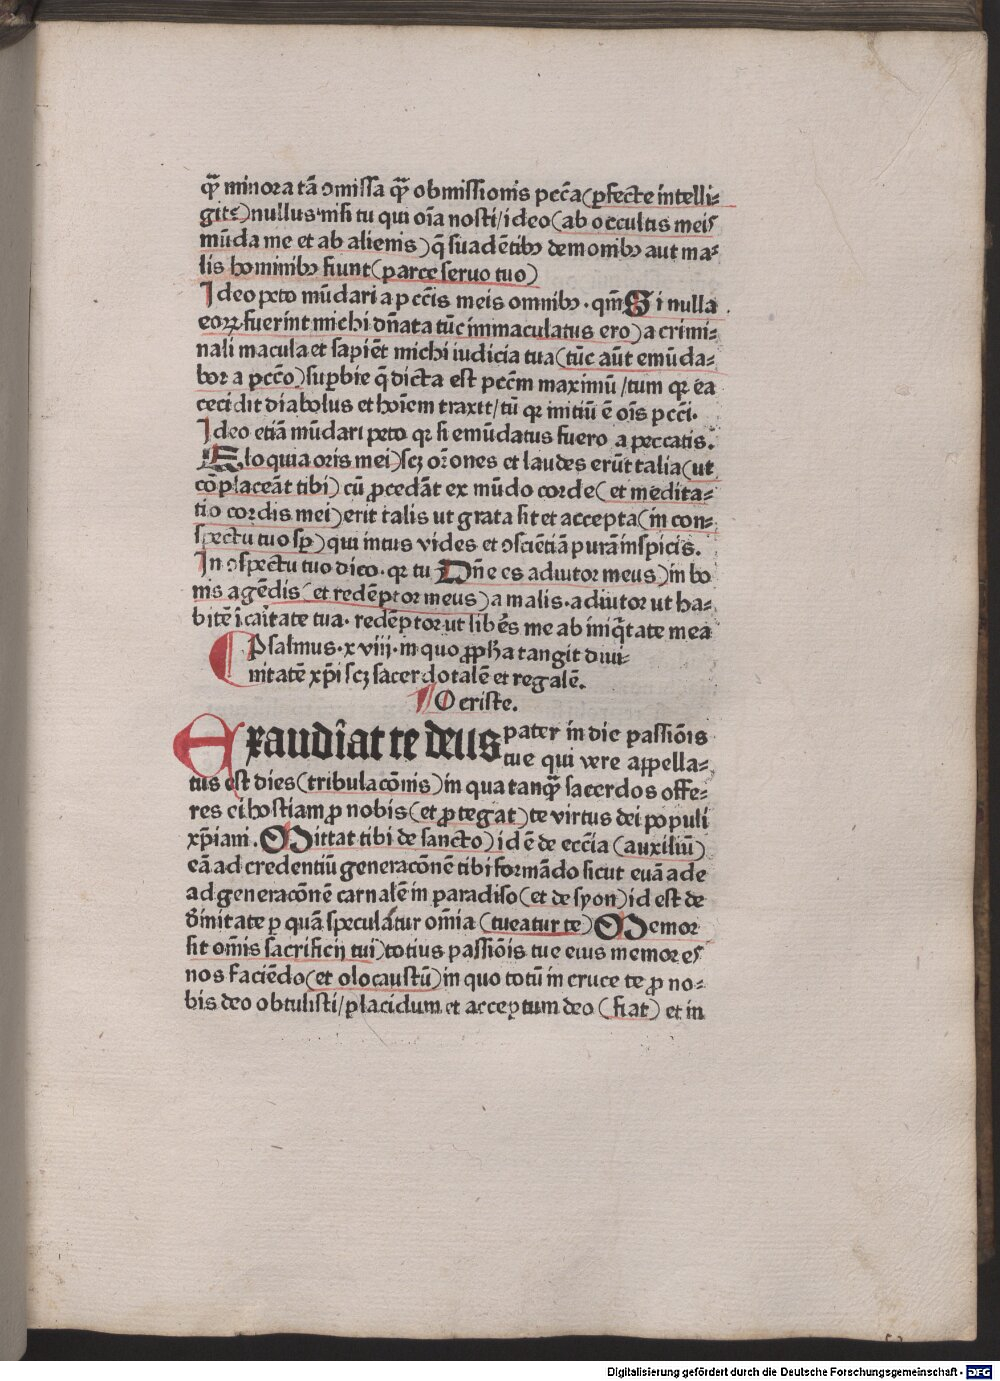 qͣꝫ minora tā ↄmissa qͣꝫ obmissionis pctā (ꝑfecte intelli⸗
git⸗) nullus nisi tu qui oīa nosti / ideo (ab occultis meis
mūda me et ab alienis) q̄ suadētibꝫ demonibꝫ aut ma⸗
lis hominibꝫ fiunt (parce seruo tuo)
Ideo peto mūdari a pctīs meis omnibꝫ · qm̄ Si nulla
eoꝝ fuerint michi dn̄ata tūc immaculatus ero) a crimi⸗
nali macula et sapiēt michi iudicia tua (tūc aūt emūda⸗
bor a pctō) supbie q̄ dicta est pctm̄ maximū / tum qꝛ ea
cecidit diabolus et hoīem traxit / tū qꝛ initiū ē oīs pctī.
Ideo etiā mūdari peto qꝛ si emūdatus fuero a peccatis.
Eloquia oris mei) scꝫ orōnes et laudes erūt talia (ut
cōplaceāt tibi) cū ꝓcedāt ex mūdo corde (et medita⸗
tio cordis mei) erit talis ut grata sit et accepta (in con⸗
spectu tuo sꝑ) qui intus vides et ↄsciētiā purā inspicis.
In ↄspectu tuo dico · qꝛ tu Dn̄e es adiutor meus) in bo
nis agēdis (et redēptor meus) a malis · adiutor ut ha⸗
bitē ī caritate tua · redēptor ut libēs me ab iniq̄tate mea
Psalmus · xviii · in quo ꝓpha tangit diui⸗
nitatē xp̄i scꝫ sacerdotalē et regalē.
O criste.
Exaudiat te deus pater in die passiōis
tue qui vere appella⸗
tus est dies (tribulacōnis) in qua tanqͣꝫ sacerdos offe⸗
res ei hostiam ꝓ nobis (et ꝓtegat) te virtus dei populi
xp̄iani. Mittat tibi de sancto) id ē de ecctīa (auxiliū)
eā ad credentiū generacōnē tibi formādo sicut euā ade
ad generacōnē carnalē in paradiso (et de syon) id est de
diuinitate ꝑ quā speculātur omīa (tueatur te) Memor
sit omīs sacrificij tui) totius passiōis tue eius memor es
nos faciēdo (et olocaustū) in quo totū in cruce te ꝓ no⸗
bis deo obtulisti / placidum et acceptum deo (fiat) et in
Digitalisierung gefördert durch die Deutsche Forschungsgemeinschaft - DFG